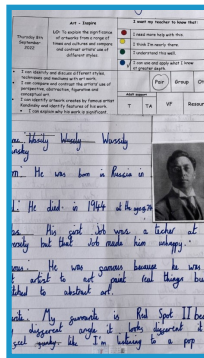 Thursday 8th September 2022
Art - Inspire
LO: To explore the significance of artworks from a range of times and cultures and compare and contrast artists' use of different styles.
I want my teacher to know that:
I need more help with this.
I think I'm nearly there.
I understand this well.
I can use and apply what I know at greater depth.
I can identify and discuss different styles, techniques and mediums with art work.
I can compare and contrast the artists' use of perspective, abstraction, figuration and conceptual art.
I can identify artwork creates by famous artist Kandinsky and identify features of his work.
I can explain why his work is significant.
Pair Group
Adult support
T TA VF Resour
Wassily Wassily Wassily
nsky
He was born in Russia in
He died in 1944 at the
His first Job was a teacher at
but that Job made him unhappy.
He was famous because he was
artist to not paint real things but
to abstract art.
My favourite is Red Spot II bec
different angle it looks different it
feel like I'm listening to a pop